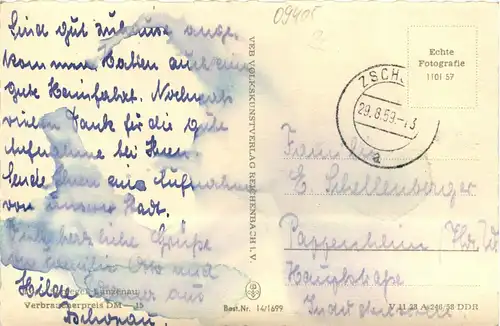 09405
Sind gut zuhause ange-
kommen. Hatten auch eine
gute Heimfahrt. Nochmals
vielen Dank für die gute
Aufnahme bei Ihnen
Sende Ihnen eine Aufnahme
von unserer Stadt.
Herzliche Grüße
und
Hilde aus
Zschopau.
Verbraucherpreis DM —.15
VEB VOLKSKUNSTVERLAG REICHENBACH i. V.
Best.Nr. 14/1699
Echte
Fotografie
1101 57
ZSCHO
29.8.59.-13
a
Familie
E Schellenberger
Pappenheim
Hauptstraße
V 11 28 A 246/58 DDR